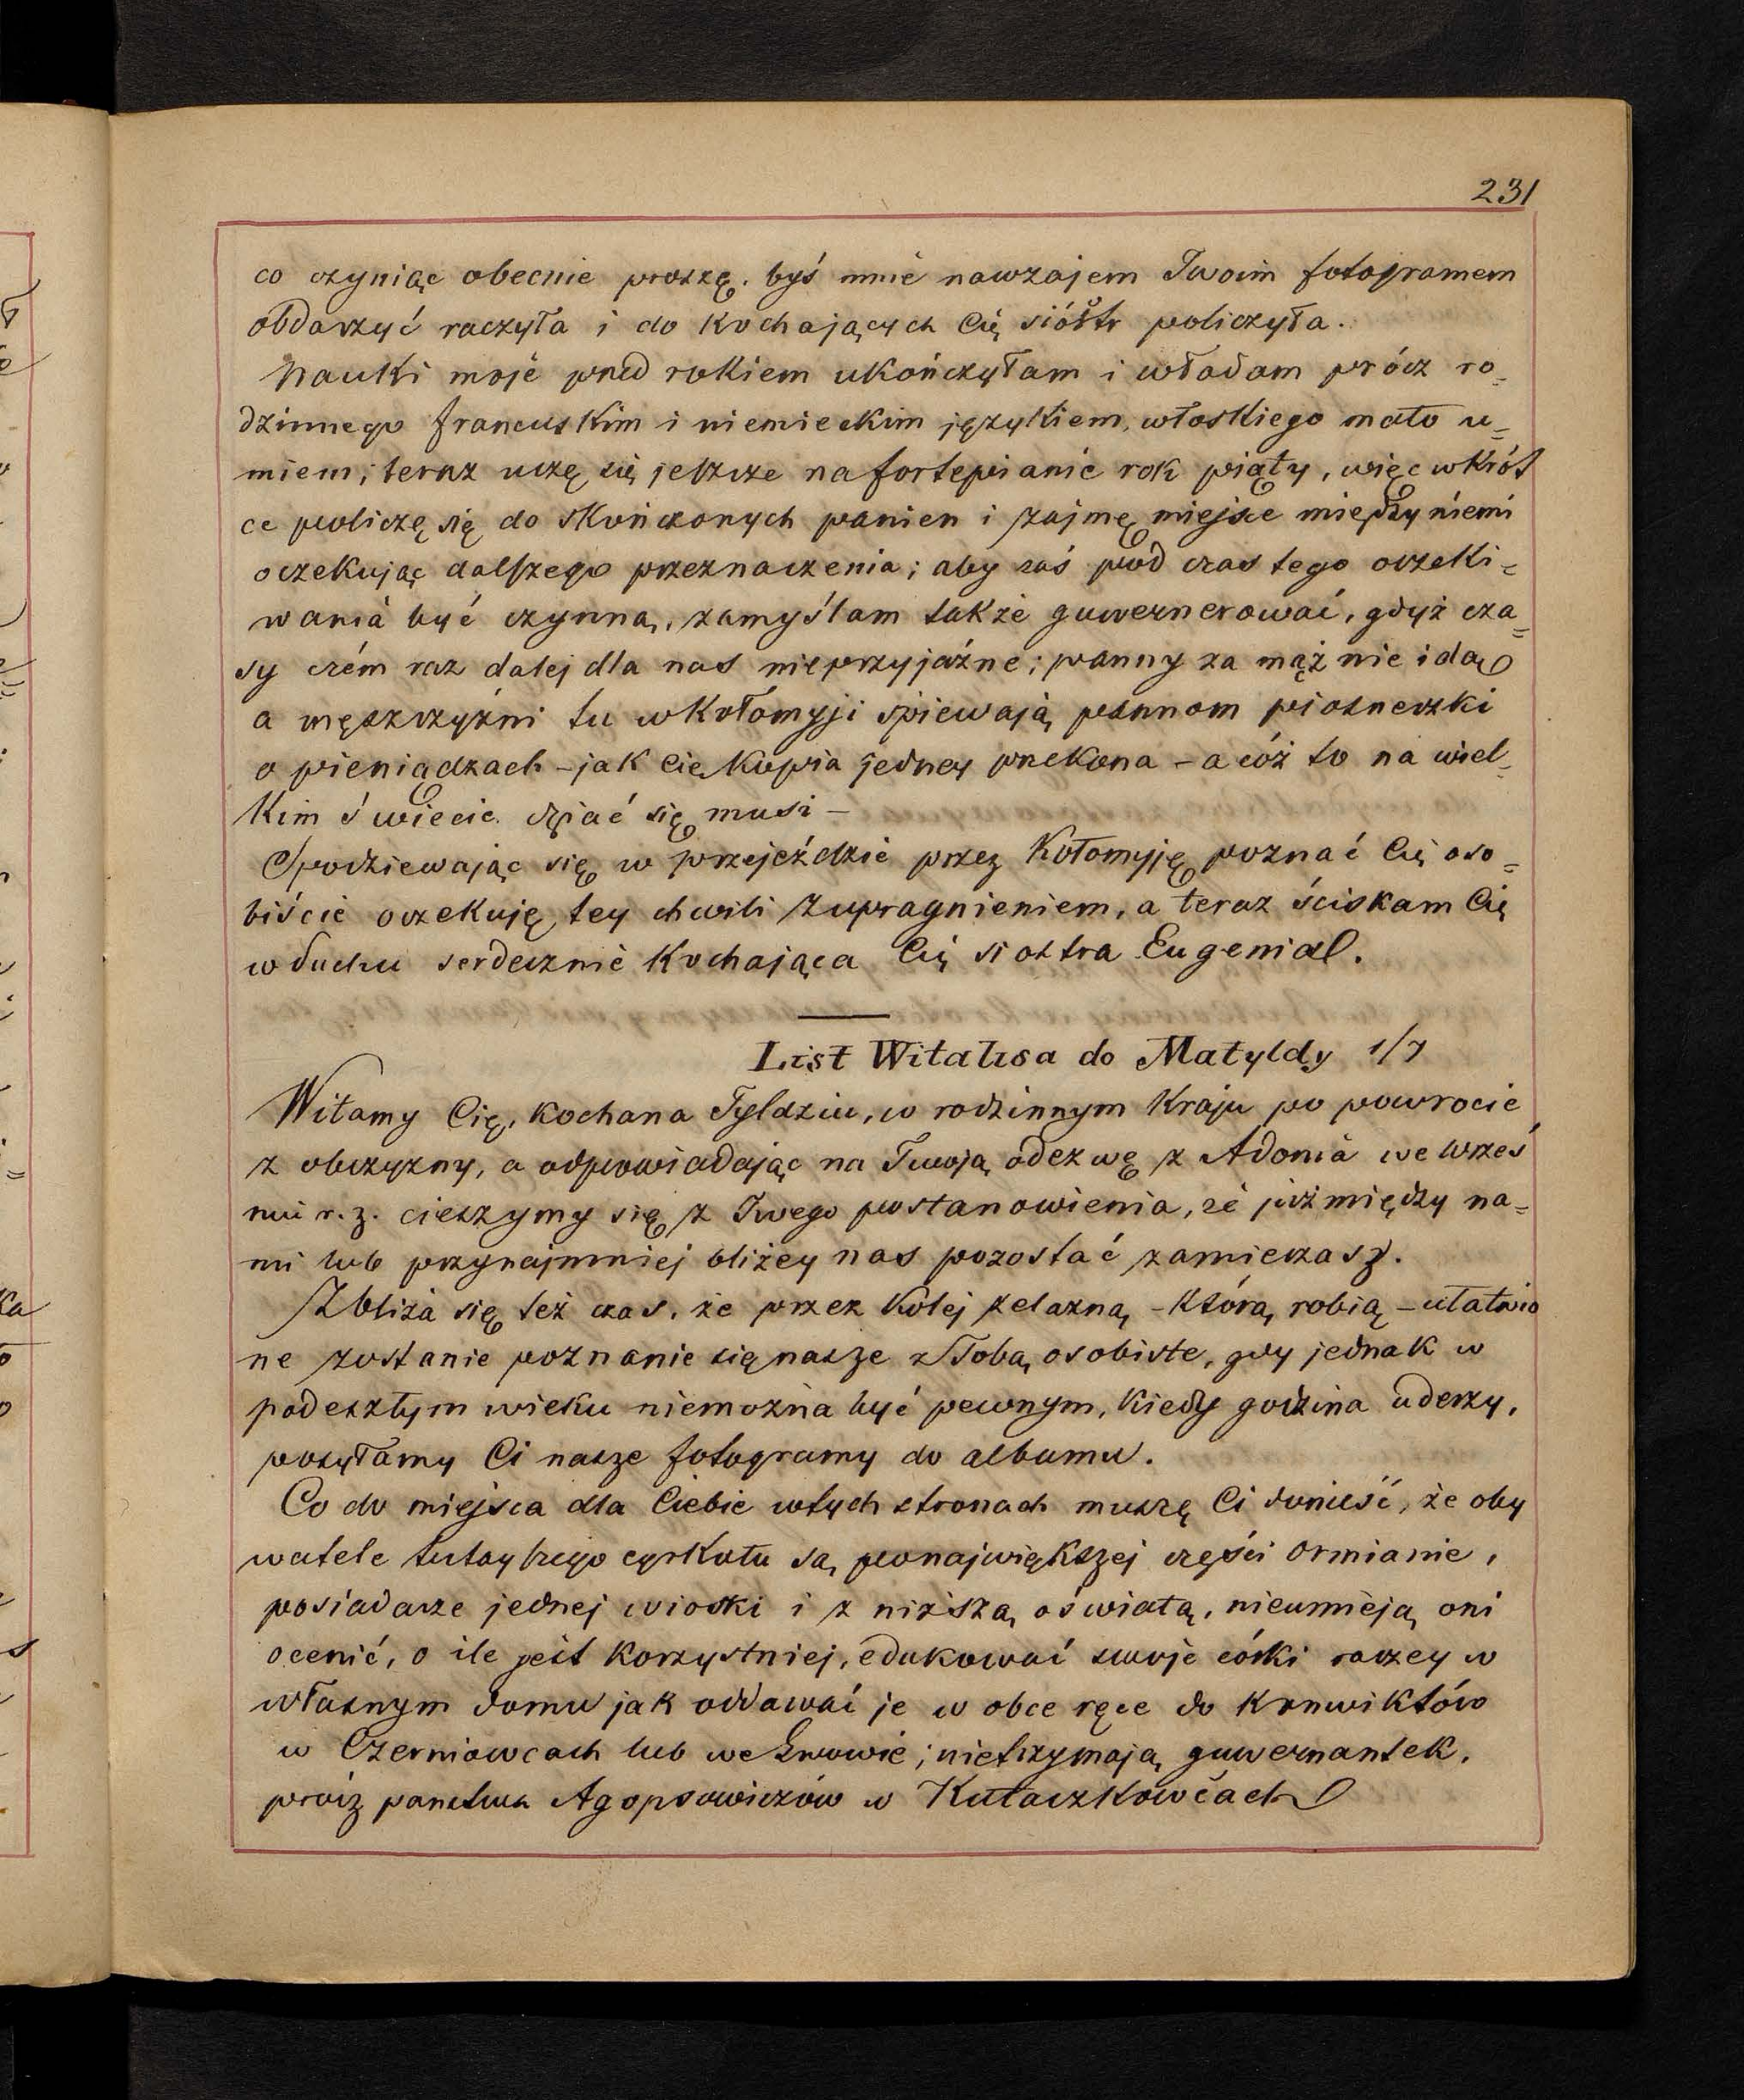 231
co czyniąc obecnie proszę, byś mnie nawzajem Twoim fotogramem
obdarzyć raczyła i do kochających Cię sióstr policzyła.
Nauki moje pned rokiem ukończyłam i władam prócz ro=
dzinnego francuskim i niemieckim językiem, włoskiego mało u=
miem; teraz uczę się jeszcze na fortepianie rok piąty, więc wkrót
ce policzę się do skończonych panien i zajmę miejsce między niemi
oczekując dalszego przeznaczenia; aby zaś pod czas tego oczeki=
wania być czynną, zamyślam także guwernerować, gdyż cza=
sy czém raz dalej dla nas nieprzyjaźne; panny za mąż nie idą
a męszczyźni tu w Kołomyji śpiewają pannom piosneczki
o pieniądzach – jak Cię kupią jedney przekona – a cóż to na wiel=
kim świecie dziać się musi –
Spodziewając się w przejeździe przez Kołomyję poznać Cię oso=
biście oczekuję tey chwili z upragnieniem, a teraz ściskam Cię
w duchu serdecznie kochająca Cię siostra Eugenia.
List Witalisa do Matyldy 1/7
Witamy Cię, kochana Tyldziu, w rodzinnym kraju po powrocie
z obczyzny, a odpowiadając na Twoją odezwę z Adonia we wrześ
niu r. z. cieszymy się z Twego postanowienia, że już między na=
mi lub przynajmniej bliżey nas pozostać zamierzasz.
Zbliża się też czas, że przez kolej żelazną – którą robią – ułatwio
ne zostanie poznanie się nasze z Tobą osobiste, gdy jednak w
podeszłym wieku niemożna być pewnym, kiedy godzina uderzy,
posyłamy Ci nasze fotogramy do albumu.
Co do miejsca dla Ciebie w tych stronach muszę Ci donieść, że oby
watele tutayszego cyrkułu są ponajwiększej części Ormianie,
posiadacze jednej wioski i z niższą oświatą, nieumieją oni
ocenić, o ile jest korzystniej, edukować swoje córki raczey w
własnym domu jak oddawać je w obce ręce do konwiktów
w Czerniowcach lub we Lwowie; nietrzymają guwernantek,
prócz państwa Agopsowiczów w Kułaczkowcach